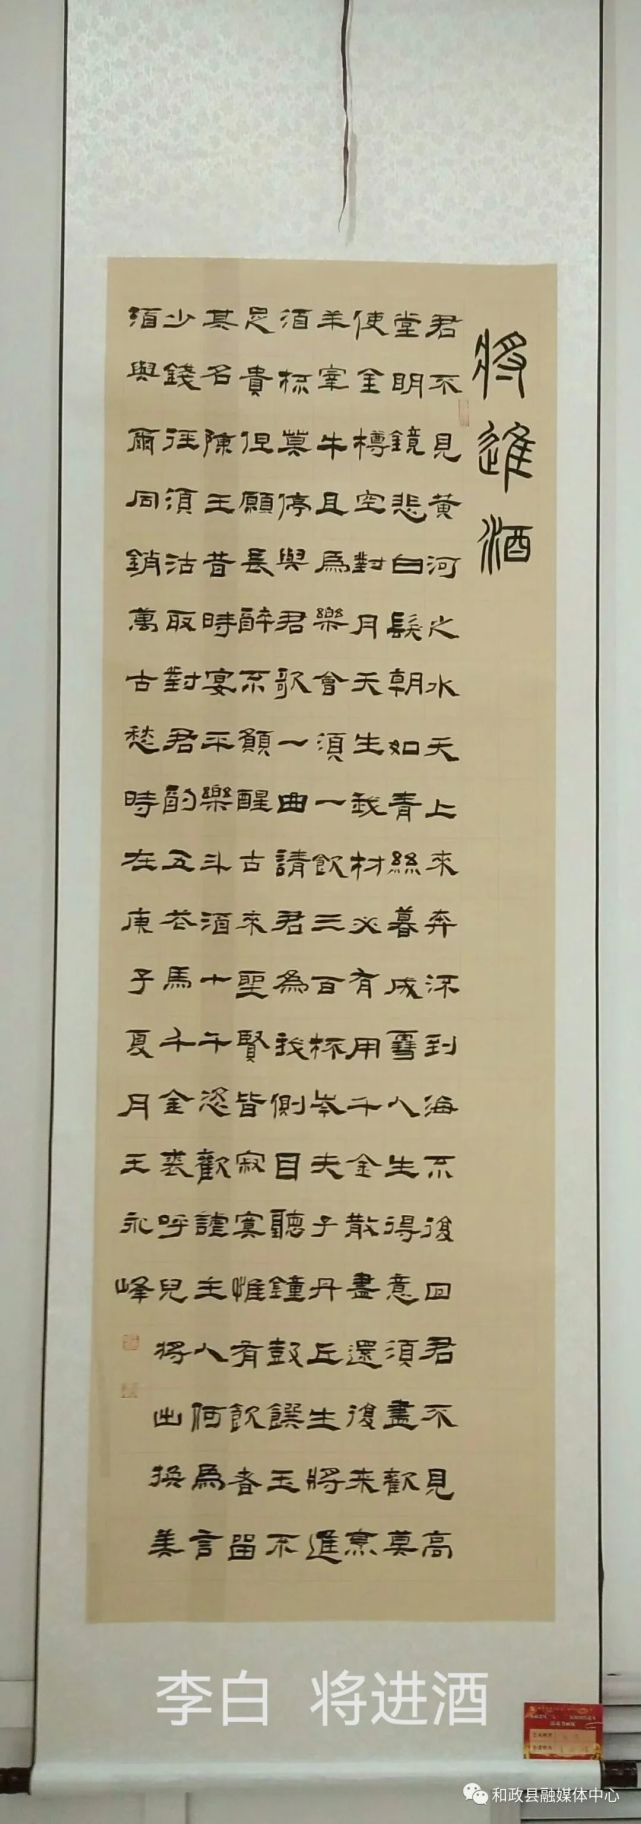 將進酒
君不見黃河之水天上來奔流到海不復回君不見高
堂明鏡悲白髮朝如青絲暮成雪人生得意須盡歡莫
使金樽空對月天生我材必有用千金散盡還復來烹
羊宰牛且為樂會須一飲三百杯岑夫子丹丘生將進
酒杯莫停與君歌一曲請君為我側目聽鐘鼓饌玉不
足貴但願長醉不願醒古來聖賢皆寂寞惟有飲者留
其名陳王昔時宴平樂斗酒十千恣歡謔主人何為言
少錢徑須沽取對君酌五花馬千金裘呼兒將出換美
酒與爾同銷萬古愁時在庚子夏月王永峰
李白 将进酒
和政县融媒体中心